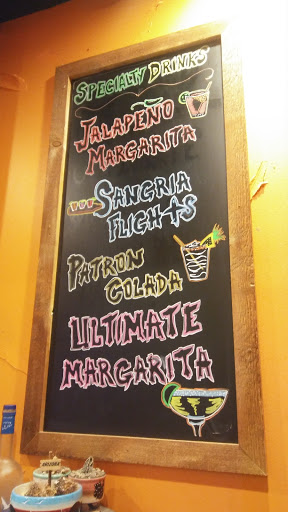 SPECIALTY DRINKS
JALAPEÑO
MARGARITA
SANGRIA
FLIGHTS
PATRON
COLADA
ULTIMATE
MARGARITA